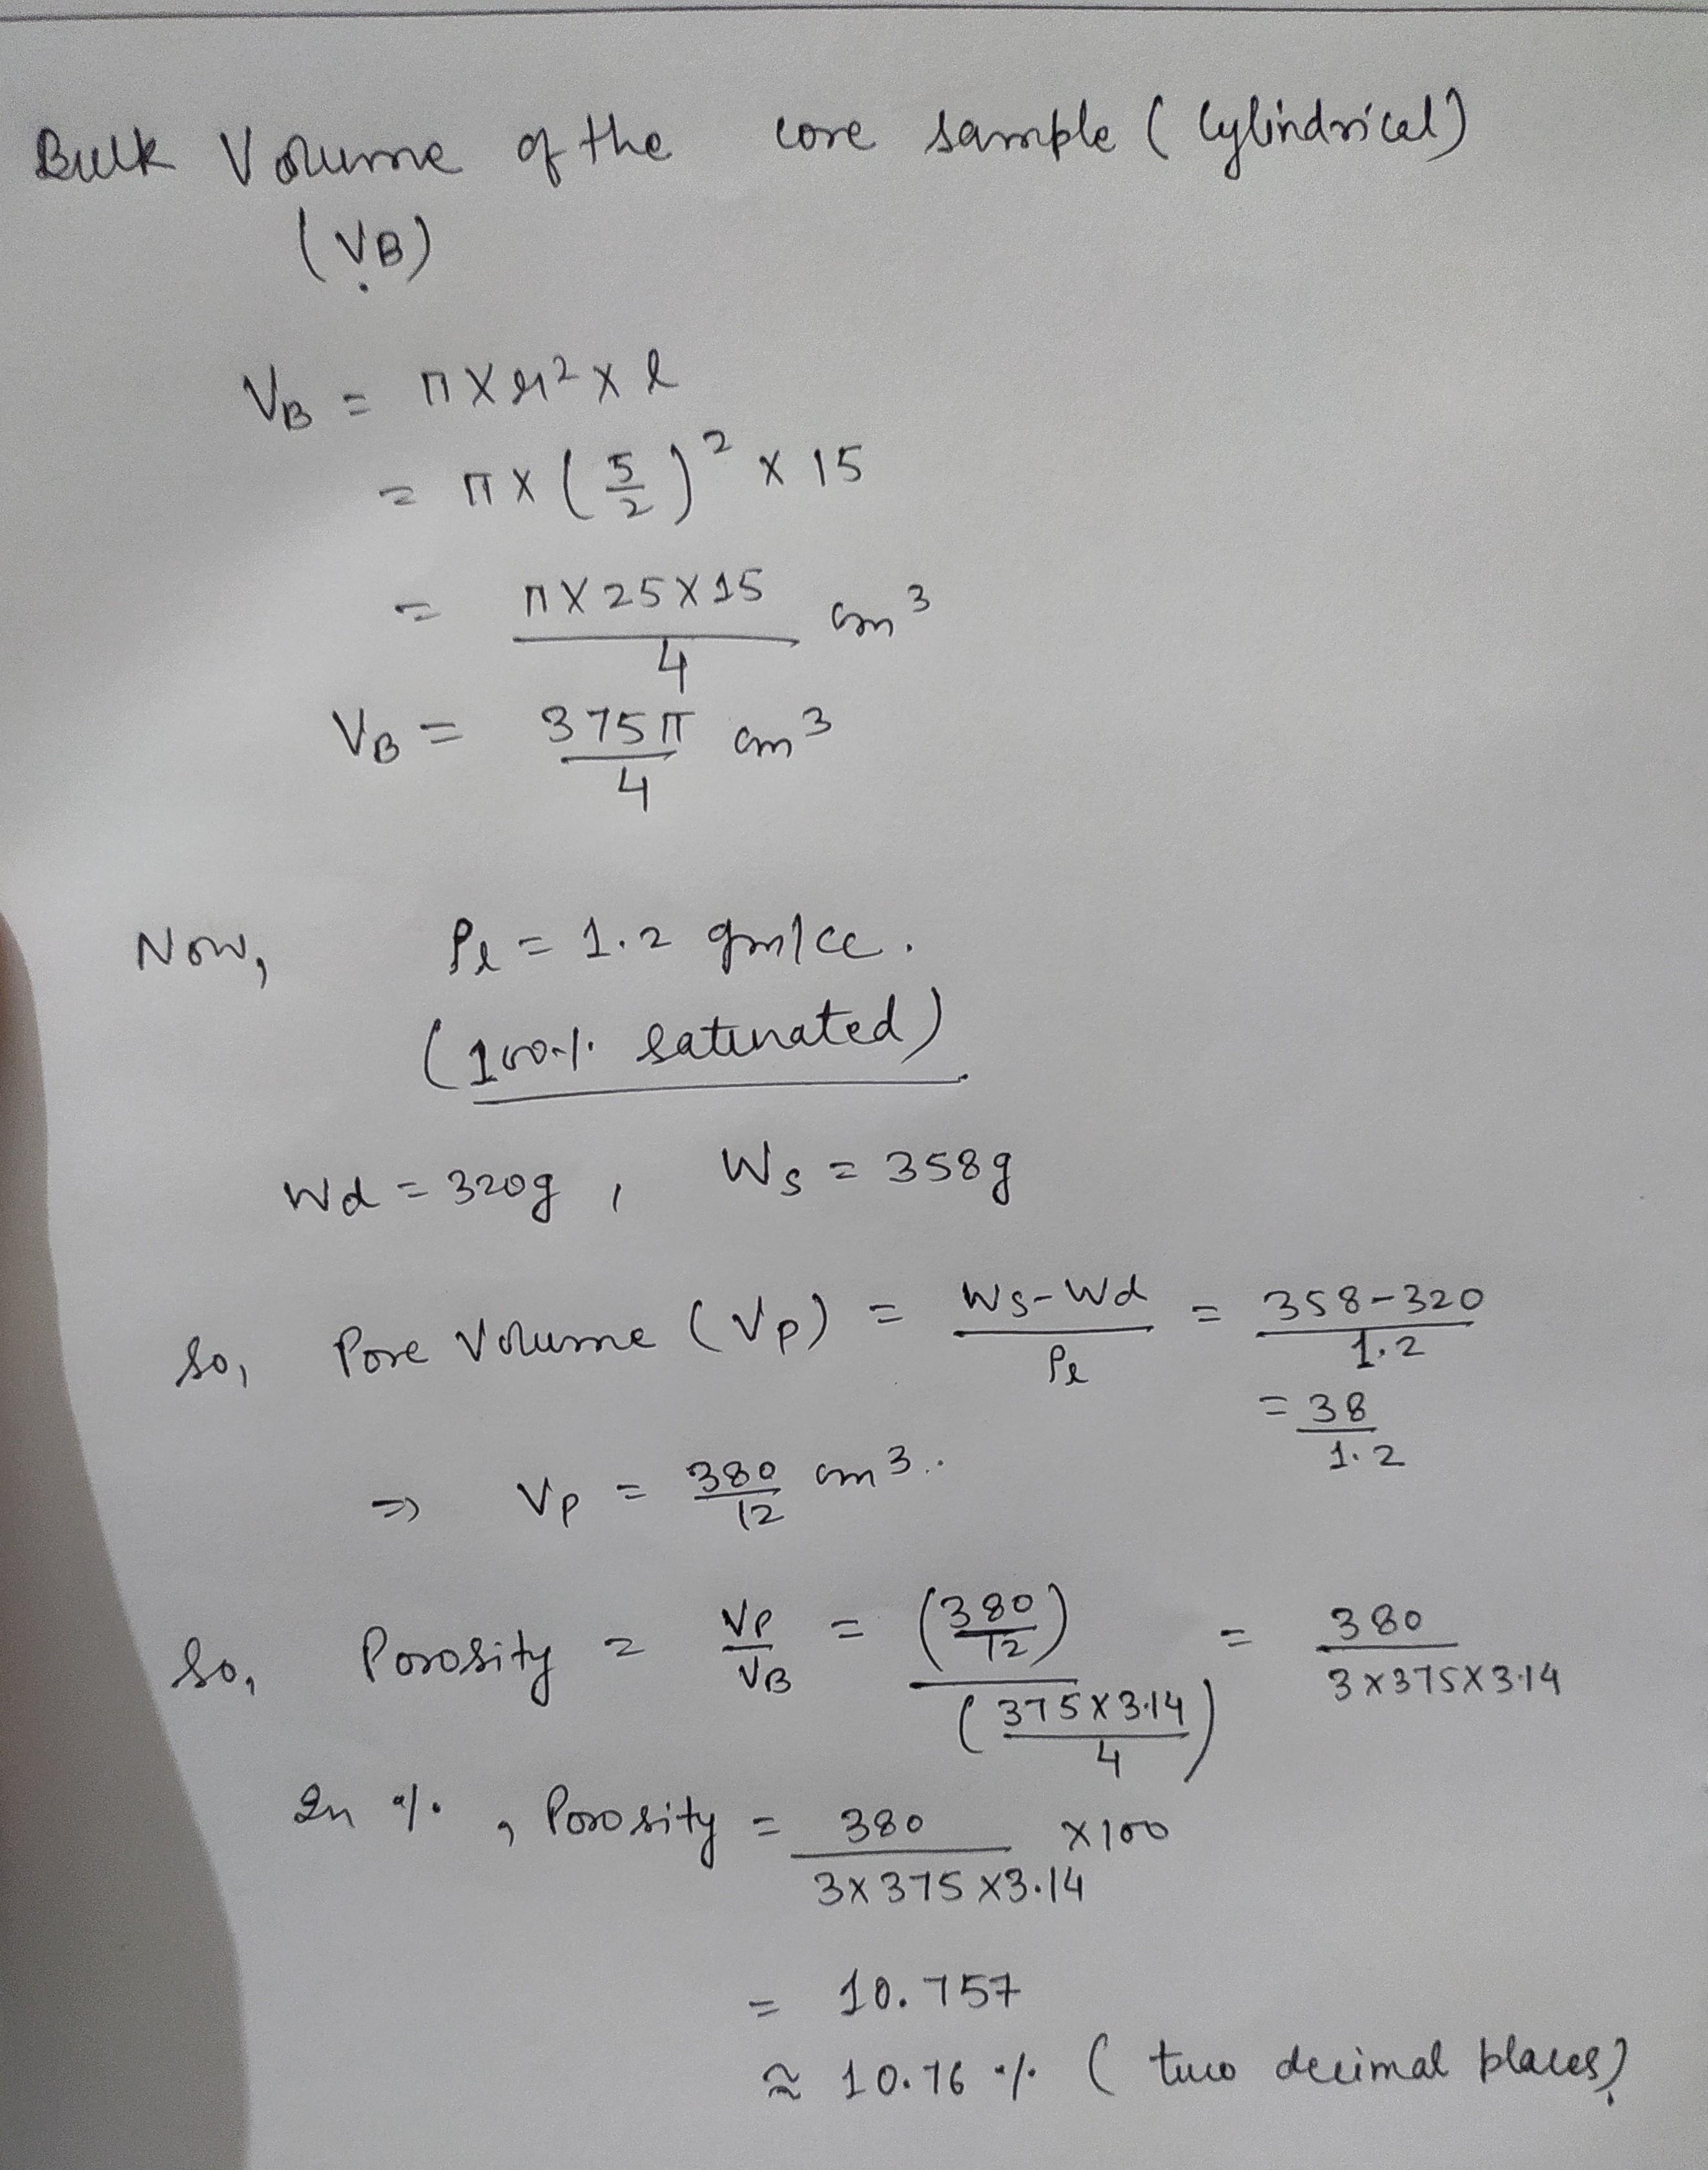 Bulk Volume of the core sample (Cylindrical)
(VB)
VB = π × r² × l
= π × (5/2)² × 15
= π × 25 × 15 / 4 cm³
VB = 375π / 4 cm³
Now, ρl = 1.2 gm/cc.
(100% saturated)
Wd = 320g , Ws = 358g
So, Pore Volume (Vp) = Ws - Wd / ρl = 358 - 320 / 1.2
= 38 / 1.2
=> Vp = 380 / 12 cm³.
So, Porosity = VP / VB = (380 / 12) / (375 × 3.14 / 4) = 380 / 3 × 375 × 3.14
In % , Porosity = 380 / 3 × 375 × 3.14 × 100
= 10.757
≈ 10.76 % (two decimal places)